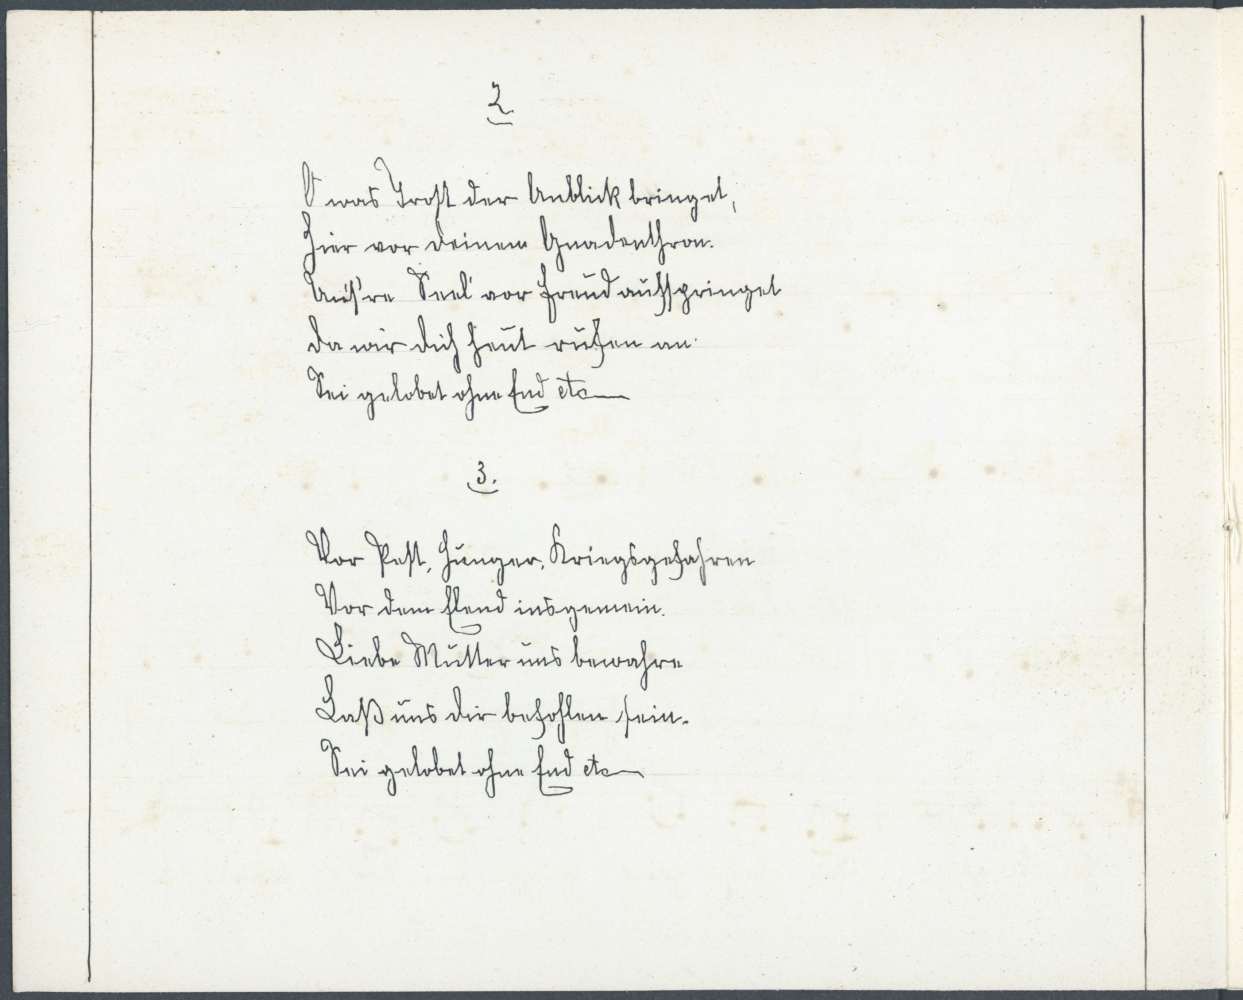 2.
O was Trost der Anblick bringet,
Hier vor deinem Gnadenthron.
Uns're Seel' vor Freud aufspringet
da wir dich heut rufen an.
Sei gelobet ohne End etc
3.
Vor Pest, Hunger, Kriegsgefahren
Vor dem Elend insgemein.
Liebe Mutter uns bewahre
Laß uns dir befohlen sein.
Sei gelobet ohne End etc